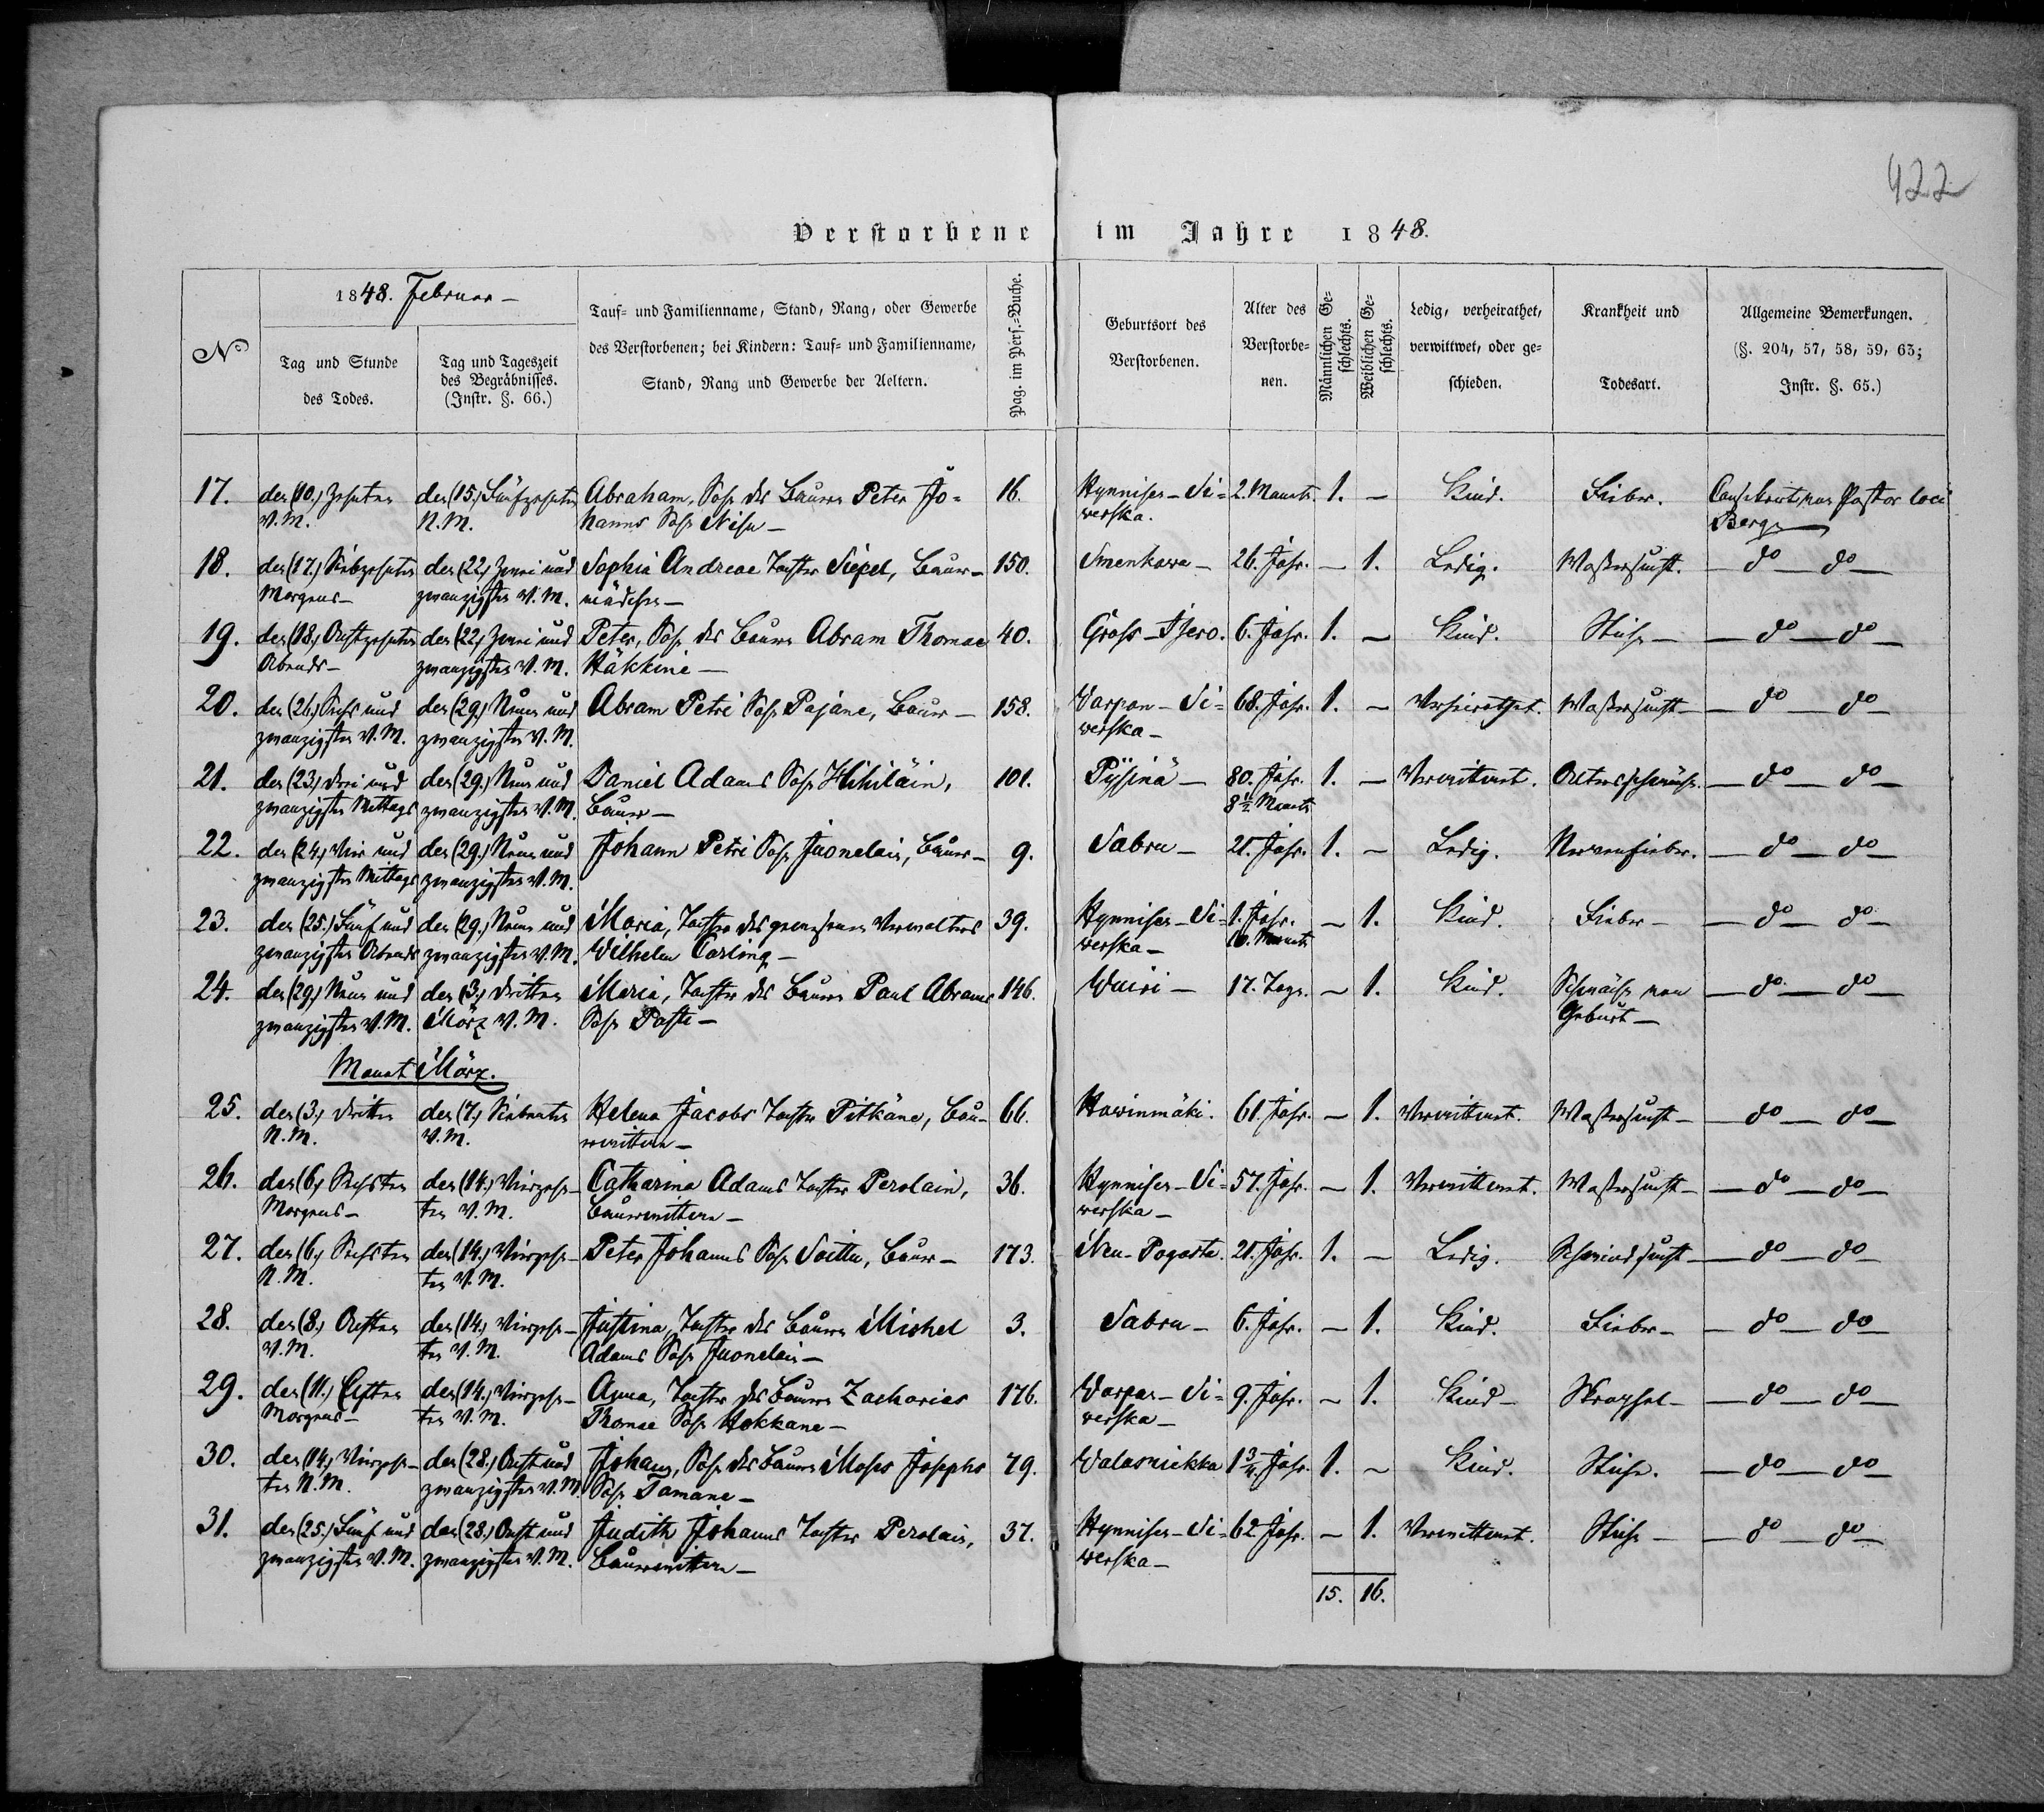 422
Verstorbene im Jahre 1848.
№
1848. Februar —
Tag und Stunde
des Todes.
Tag und Tageszeit
des Begräbnisses.
(Instr. §. 66.)
Tauf- und Familienname, Stand, Rang, oder Gewerbe
des Verstorbenen; bei Kindern: Tauf- und Familienname,
Stand, Rang und Gewerbe der Aeltern.
Pag. im Pers.-Buche.
Geburtsort des
Verstorbenen.
Alter des
Verstorbe-
nen.
Männlichen Ge-
schlechts.
Weiblichen Ge-
schlechts.
Ledig, verheirathet,
verwittwet, oder ge-
schieden.
Krankheit und
Todesart.
Allgemeine Bemerkungen.
(§. 204, 57, 58, 59, 63;
Instr. §. 65.)
17. den (10.) Zehnten den (15.) Fünfzehnten Abraham, Sohn des Bauern Peter Jo= 16. Hynnisen-Si= 2. Monate 1. — Kind. Fieber. Pastor loci
V.M. N.M. hanns Sohn Nisu — werska. Berg
18. den (17.) Siebzehnten den (22.) Zwei und Sophia Andreae Tochter Siepel, Bauer- 150. Smenkowa — 26. Jahr. — 1. Ledig. Waßersucht. — do — do —
Morgens — zwanzigsten V.M. mädchen —
19. den (18.) Achtzehnten den (22.) Zwei und Peter, Sohn des Bauern Abram Thomae 40. Gross-Isero. 6. Jahr. 1. — Kind. — do — do —
Abends — zwanzigsten V.M. Häkkine —
20. den (26.) Sechs und den (29.) Neun und Abram Petri Sohn Pajane, Bauer — 158. Warpan-Si= 68. Jahr. 1. — Verheirathet. Waßersucht — — do — do —
zwanzigsten V.M. zwanzigsten V.M. werska —
21. den (23.) Drei und den (29.) Neun und Daniel Adams Sohn Hihiläin, 101. Pyssinä — 80. Jahr. 1. — Verwittwet. Altersschwäche. — do — do —
zwanzigsten Mittags zwanzigsten V.M. Bauer — 8½ Monate
22. den (24.) Vier und den (29.) Neun und Johann Petri Sohn Juonelain, Bauer — 9. Sabru — 21. Jahr. 1. — Ledig. Nervenfieber. — do — do —
zwanzigsten Mittags zwanzigsten V.M.
23. den (25.) Fünf und den (29.) Neun und Maria, Tochter des gewesenen Verwalters 39. Hynnisen-Si= 1. Jahr. — 1. Kind. Fieber — — do — do —
zwanzigsten Abends zwanzigsten V.M. Wilhelm Carling — werska — 10. Monate
24. den (29.) Neun und den (3.) Dritten Maria, Tochter des Bauern Paul Abrams 146. Wuiri — 17. Tage. — 1. Kind. Schwäche von — do — do —
zwanzigsten V.M. März V.M. Sohn Paste — Geburt —
Monat März.
25. den (3.) Dritten den (7.) Siebenten Helena Jacobs Tochter Pitkäne, Bau- 66. Hawinmäki. 61. Jahr. — 1. Verwittwet. Waßersucht — — do — do —
N.M. V.M. erwittwe —
26. den (6.) Sechsten den (14.) Vierzehn- Catharina Adams Tochter Perolain, 36. Hynnisen-Si= 57. Jahr. — 1. Verwittwet. Waßersucht — — do — do —
Morgens — ten V.M. Bauerwittwe — werska —
27. den (6.) Sechsten den (14.) Vierzehn- Peter Johanns Sohn Soittu, Bauer — 173. Neu-Pogosta. 21. Jahr. 1. — Ledig. Schwindsucht — — do — do —
N.M. ten V.M.
28. den (8.) Achten den (14.) Vierzehn- Justina, Tochter des Bauern Michel 3. Sabru — 6. Jahr. — 1. Kind. Fieber — — do — do —
V.M. ten V.M. Adams Sohn Juonelain —
29. den (11.) Elften den (14.) Vierzehn- Anna, Tochter des Bauern Zacharias 176. Warpas-Si= 9. Jahr. — 1. Kind — Skrophel — — do — do —
Morgens — ten V.M. Thomae Sohn Hokkane — werska —
30. den (14.) Vierzehn- den (28.) Acht und Johann, Sohn des Bauern Moses Josephs 79. Walasniekka 1¾. Jahr. 1. — Kind. — do — do —
ten N.M. zwanzigsten V.M. Sohn Tamane —
31. den (25.) Fünf und den (28.) Acht und Judith Johanns Tochter Perolain, 37. Hynnisen-Si= 62. Jahr. — 1. Verwittwet. — do — do —
zwanzigsten V.M. zwanzigsten V.M. Bauerwittwe — werska —
15. 16.